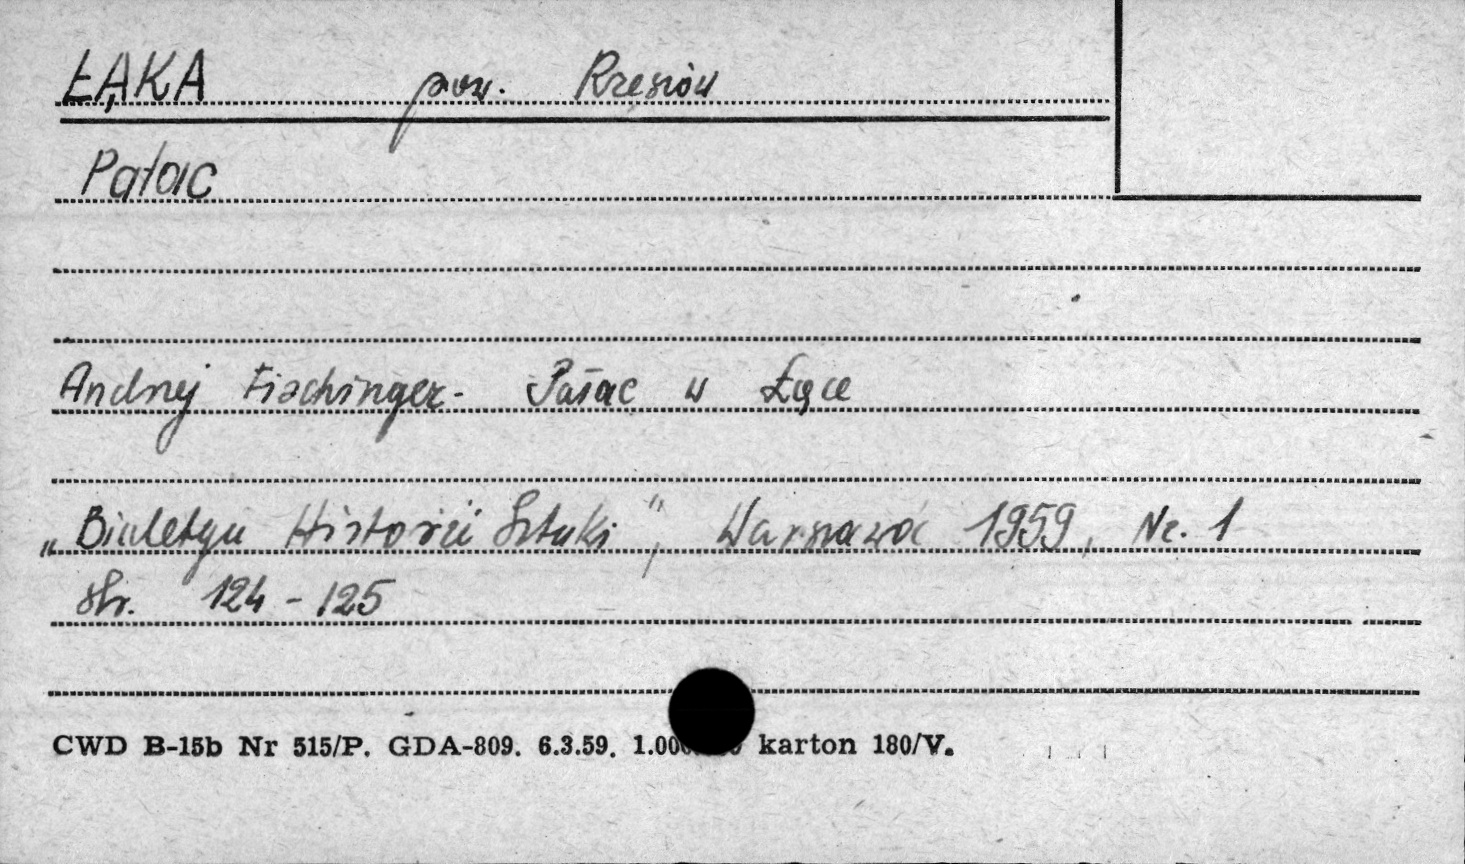 ŁĄKA pow. Rzeszów
Pałac
Andrzej Fischinger - Pałac w Łące
„Biuletyn Historii Sztuki", Warszawa 1959, Nr. 1
str. 124 - 125
CWD B-15b Nr 515/P. GDA-809. 6.3.59. karton 180/V.